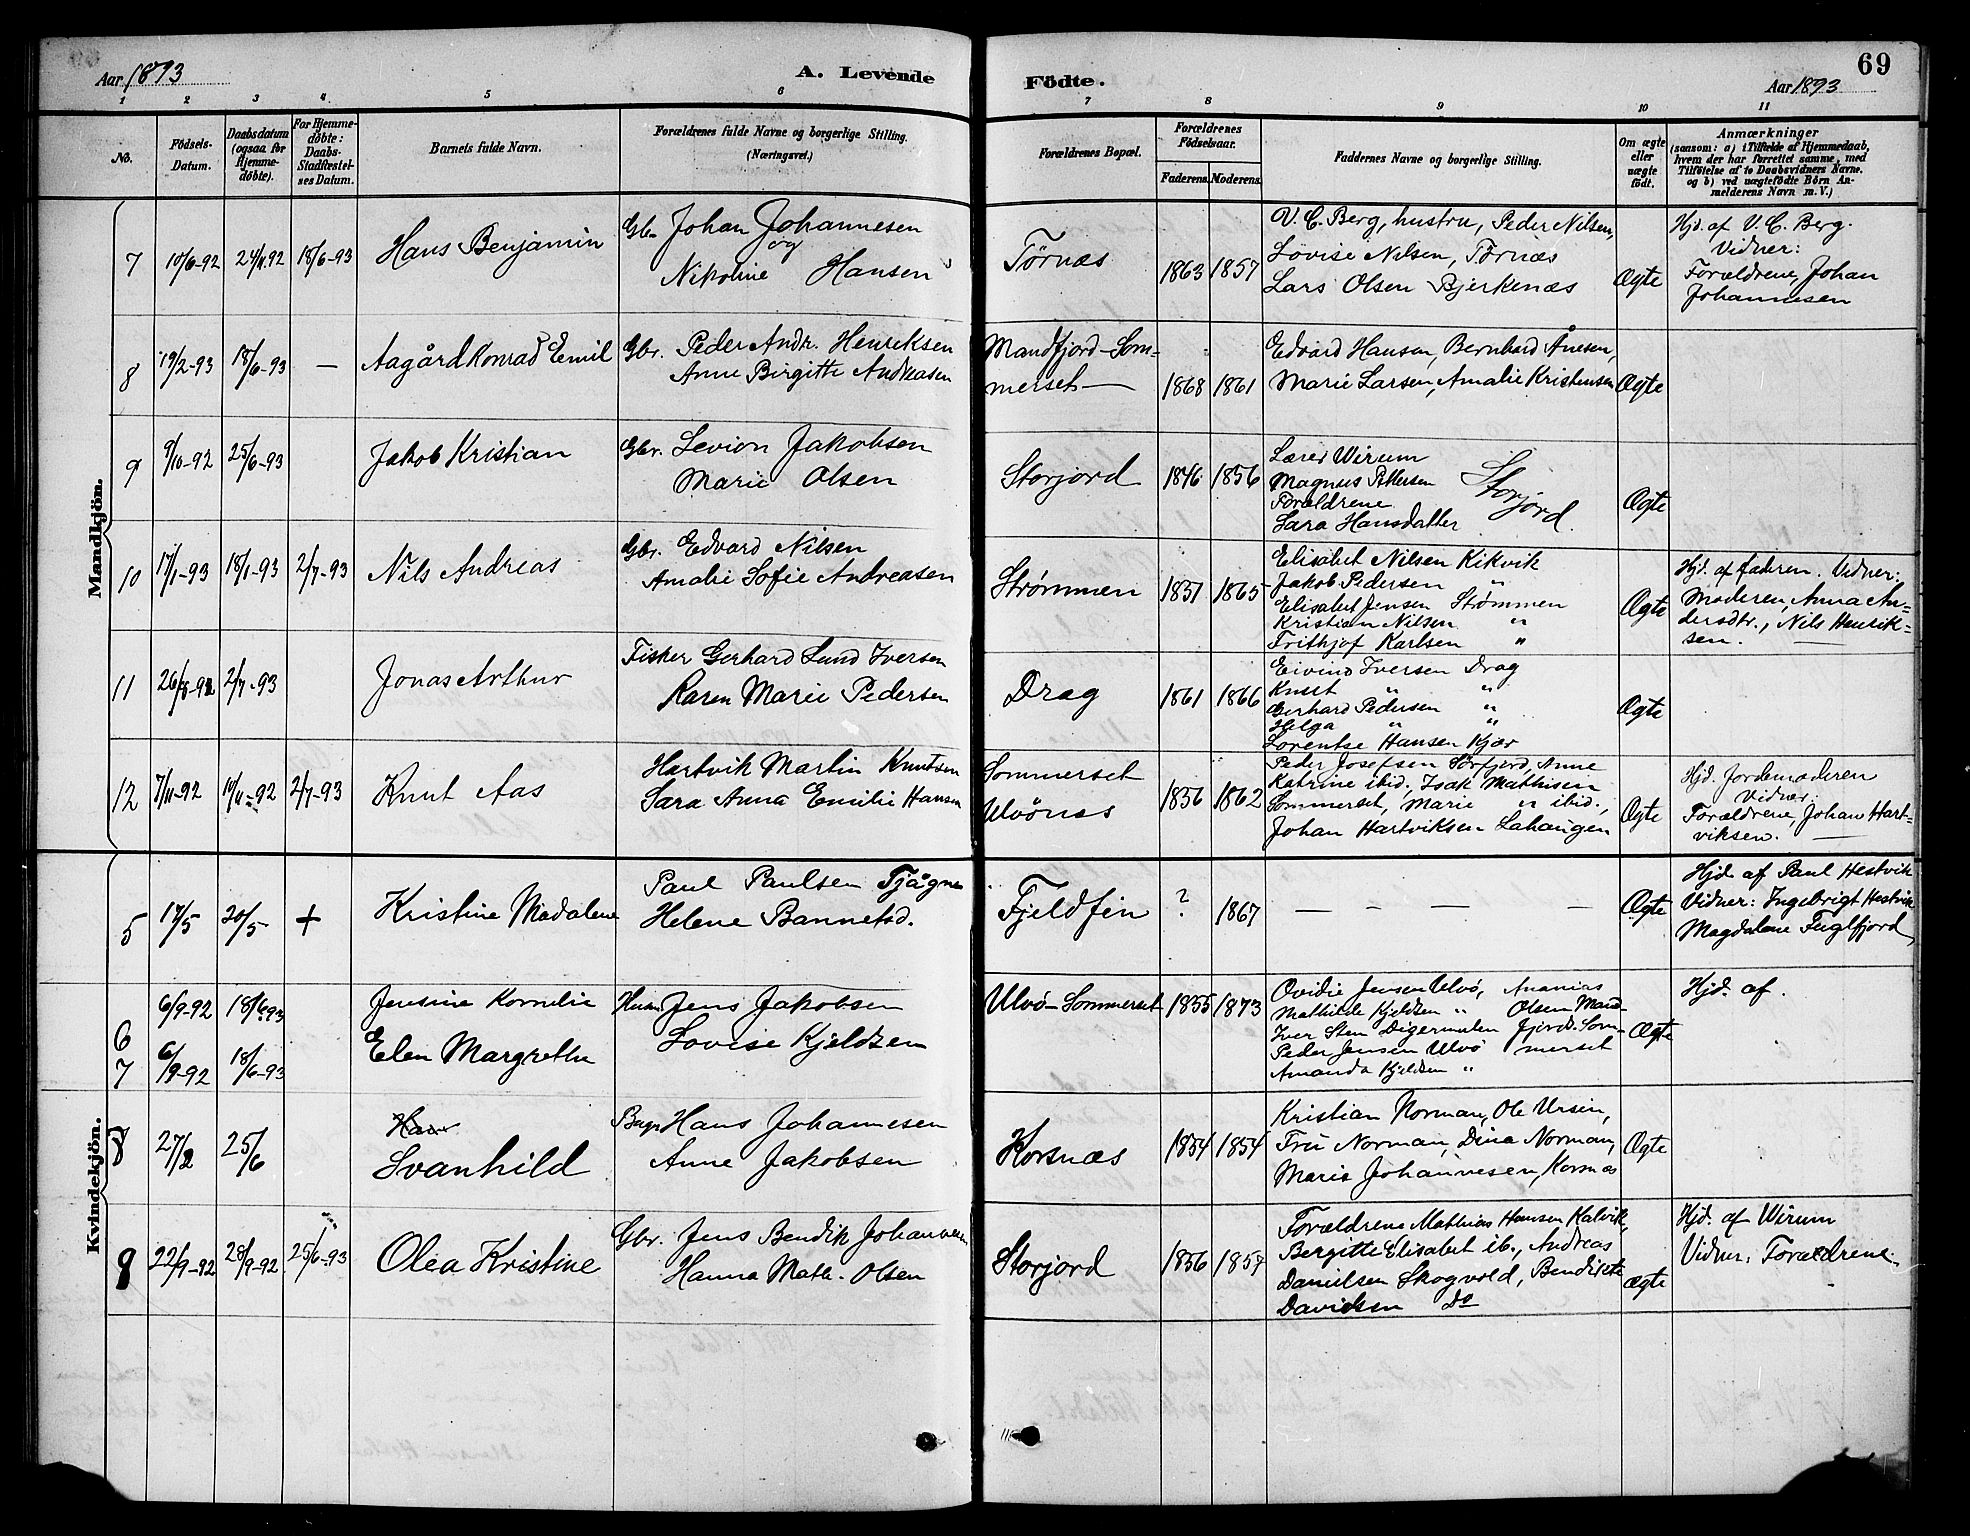 69
Aar 1893 A. Levende Födte. Aar 1893
1 2 3 4 5 6 7 8 9 10 11
No. | Födsels-Datum. | Daabsdatum (ogsaa for Hjemme-döbte). | For Hjemme-döbte: Daabs-Stadfæstel-ses Datum. | Barnets fulde Navn. | Forældrenes fulde Navne og borgerlige Stilling. (Næringsvei.) | Forældrenes Bopæl. | Forældrenes Födselsaar. Faderens. Moderens. | Faddernes Navne og borgerlige Stilling. | Om ægte eller uægte födt. | Anmærkninger (saasom: a) i Tilfælde af Hjemmedaab, hvem der har forrettet samme, med Tilföielse af to Daabsvidners Navne. og b) ved uægtefödte Börn An-melderens Navn m. V.)
Mandkjön.
7 10/6-92 18/6-93 Hans Benjamin Gbr. Johan Johannesen
og
Nikoline Hansen
Tørnæs 1863 1857
V. C. Berg, hustru, Peder Nilsen,
Lovise Nilsen, Tørnæs
Lars Olsen Bjerkenæs
Ægte
Hjd. af V. C. Berg.
Vidner:
Forældrene, Johan
Johannesen
8 19/2-93 18/6-93 — Aagård Konrad Emil Gbr. Peder Andr. Henriksen
Anne Birgitte Andreasen
Mandfjord-Som=
merset— 1868 1861
Edvard Hansen, Bernhard Ånesen,
Marie Larsen, Amalie Kristensen
Ægte
9 9/10-92 25/6-93 Jakob Kristian Gbr. Levion Jakobsen
Marie Olsen
Storjord 1846 1856
Lærer Wirum
Magnus Pettersen
Forældrene
Sara Hansdatter
Storjord.
Ægte
10 17/1-93 18/1-93 2/7-93 Nils Andreas Gbr. Edvard Nilsen
Amalie Sofie Andreasen
Strømmen 1865
Elisabet Nilsen Kikvik
Jakob Pedersen "
Elisabet Jensen Strømmen
Kristian Nilsen "
Frithjof Karlsen "
Ægte
Hjd. af faderen. Vidner:
Moderen, Anna An=
dersdtr., Nils Henrik=
sen.
11 2/7-93 Jonas Arthur Fisker Gerhard Lund Iversen
Karen Marie Pedersen
Drag 1861 1866
Eivind Iversen Drag
Knut " "
Gerhard Pedersen "
Helga " "
Lorentse Hansen Kjær
Ægte
12 7/11-92 2/7-93 Knut Aas Hartvik Martin Knutsen
Sara Anna Emilie Hansen
Sommerset
Ulvönæs 1856 1862
Peder Josefsen Sörfjord, Anne
Katrine ibid., Isak Mathisen
Sommerset, Marie " ibid.,
Johan Hartviksen Lahaugen
Ægte
Hjd. Jordemoderen
Vidner:
Forældrene, Johan Hart=
viksen.
Kvindekjön.
5 17/5 20/5 + Kristine Madalene Paul Paulsen
Helene
Fjeldfin ? 1867 — — — —
Ægte
Hjd. af Paul Hestvik
Vidner: Ingebrigt Hestvik
Magdalene Fuglfjord
6 6/9-92 18/6-93 Jensine Kornelie Jens Jakobsen
7 6/9-92 18/6-93 Elen Margrethe Lovise Kjeldsen
Ulvö-Sommerset 1855 1873
Ovidie Jensen Ulvö, Ananias
Mathilde Kjeldsen " Olsen Mand-
Iver Sten Digermulen fjord. Som-
Peder Jensen Ulvö merset
Amanda Kjeldsen "
Ægte
Hjd. af.
8 27/2 25/6
Svanhild Hans Johannesen
Anne Jakobsen
Korsnæs 1854 1854
Kristian Norman, Ole Ursin,
Fru Norman, Dina Norman,
Marie Johannesen, Korsnæs
Ægte
9 22/9-92 28/9-92 25/6-93 Olea Kristine Gbr. Jens Bendik Johannesen
Hanna Math. Olsen
Storjord 1856 1857
Forældrene Mathias Hansen Kalvik,
Bergitte Elisabet ib., Andreas
Danielsen Skogvold, Bendikte
Davidsen Do
ægte
Hjd. af Wirum
Vidner: Forældrene.